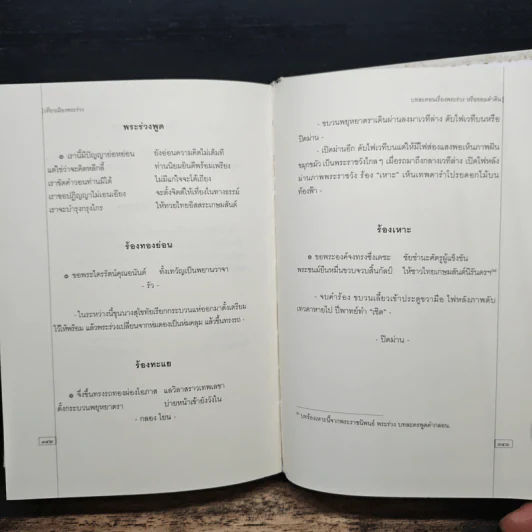 เทียนเมืองพระร่วง
พระร่วงพูด
๏ เรานี้มีปัญญาย่อหย่อน ยังอ่อนความคิดไม่เต็มที่
แต่ใช่ว่าจะคิดหลีกลี้ ท่านนิยมยินดีพร้อมเพรียง
เราขัดคำวอนท่านมิได้ ไม่มีแก่ใจจะได้เถียง
เราขอปฏิญญาไม่เอนเอียง จะตั้งจิตต์ให้เที่ยงในทางธรรม์
เราจะบำรุงกรุงไกร ให้ทวยไทยอิสสระเกษมสันต์
ร้องทองย่อน
๏ ขอพระไตรรัตน์คุณอนันต์ ทั้งเทวัญเป็นพยานวาจา
- รัว -
- ในระหว่างนี้ขุนนางสุโขทัยเรียกกระบวนแห่ออกมาตั้งเตรียม
ไว้ให้พร้อม แล้วพระร่วงเปลี่ยนจากห่มดองเป็นห่มคลุม แล้วขึ้นทรงรถ -
ร้องทะแย
๏ จึ่งขึ้นทรงรถทองผ่องโอภาส แลวิลาสราวเทพเลขา
ตั้งกระบวนพยุหยาตรา บ่ายหน้าเข้ายังวังใน
- กลอง โยน -
บทละคอนเรื่องพระร่วง หรือขอมดำดิน
- ขบวนพยุหยาตราเดินผ่านลงมาเวทีล่าง ดับไฟเวทีบนหรือ
ปิดม่าน -
- เปิดม่านอีก ดับไฟเวทีบนแต่ให้มีไฟส่องแสงพอเห็นภาพผืน
มุกขมัว เป็นพระราชวังไกล ๆ เมื่อรถมาถึงกลางเวทีล่าง เปิดไฟหลัง
ม่านภาพพระราชวัง ร้อง "เหาะ" เห็นเทพดารำโปรยดอกไม้บน
ท้องฟ้า -
ร้องเหาะ
๏ ขอพระองค์จงทรงซึ่งเดชะ ชัยชำนะศัตรูผู้แข็งขัน
พระชนม์ยืนหมื่นขวบจวบสิ้นกัลป์ ให้ชาวไทยเกษมสันต์นิรันดรฯ
- จบคำร้อง ขบวนเลี้ยวเข้าประตูขวามือ ไฟหลังภาพดับ
เทวดาหายไป ปี่พาทย์ทำ "เชิด" -
- ปิดม่าน -
บทร้องเหาะนี้จากพระราชนิพนธ์ พระร่วง บทละครพูดคำกลอน.